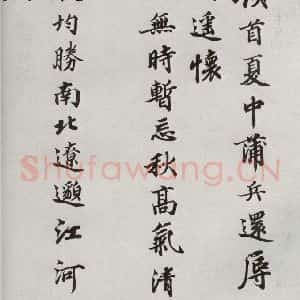 首夏中蒲兵還辱
遥懷
無時暫忘秋高氣清
均勝南北遼邈江河
Shufawang.CN